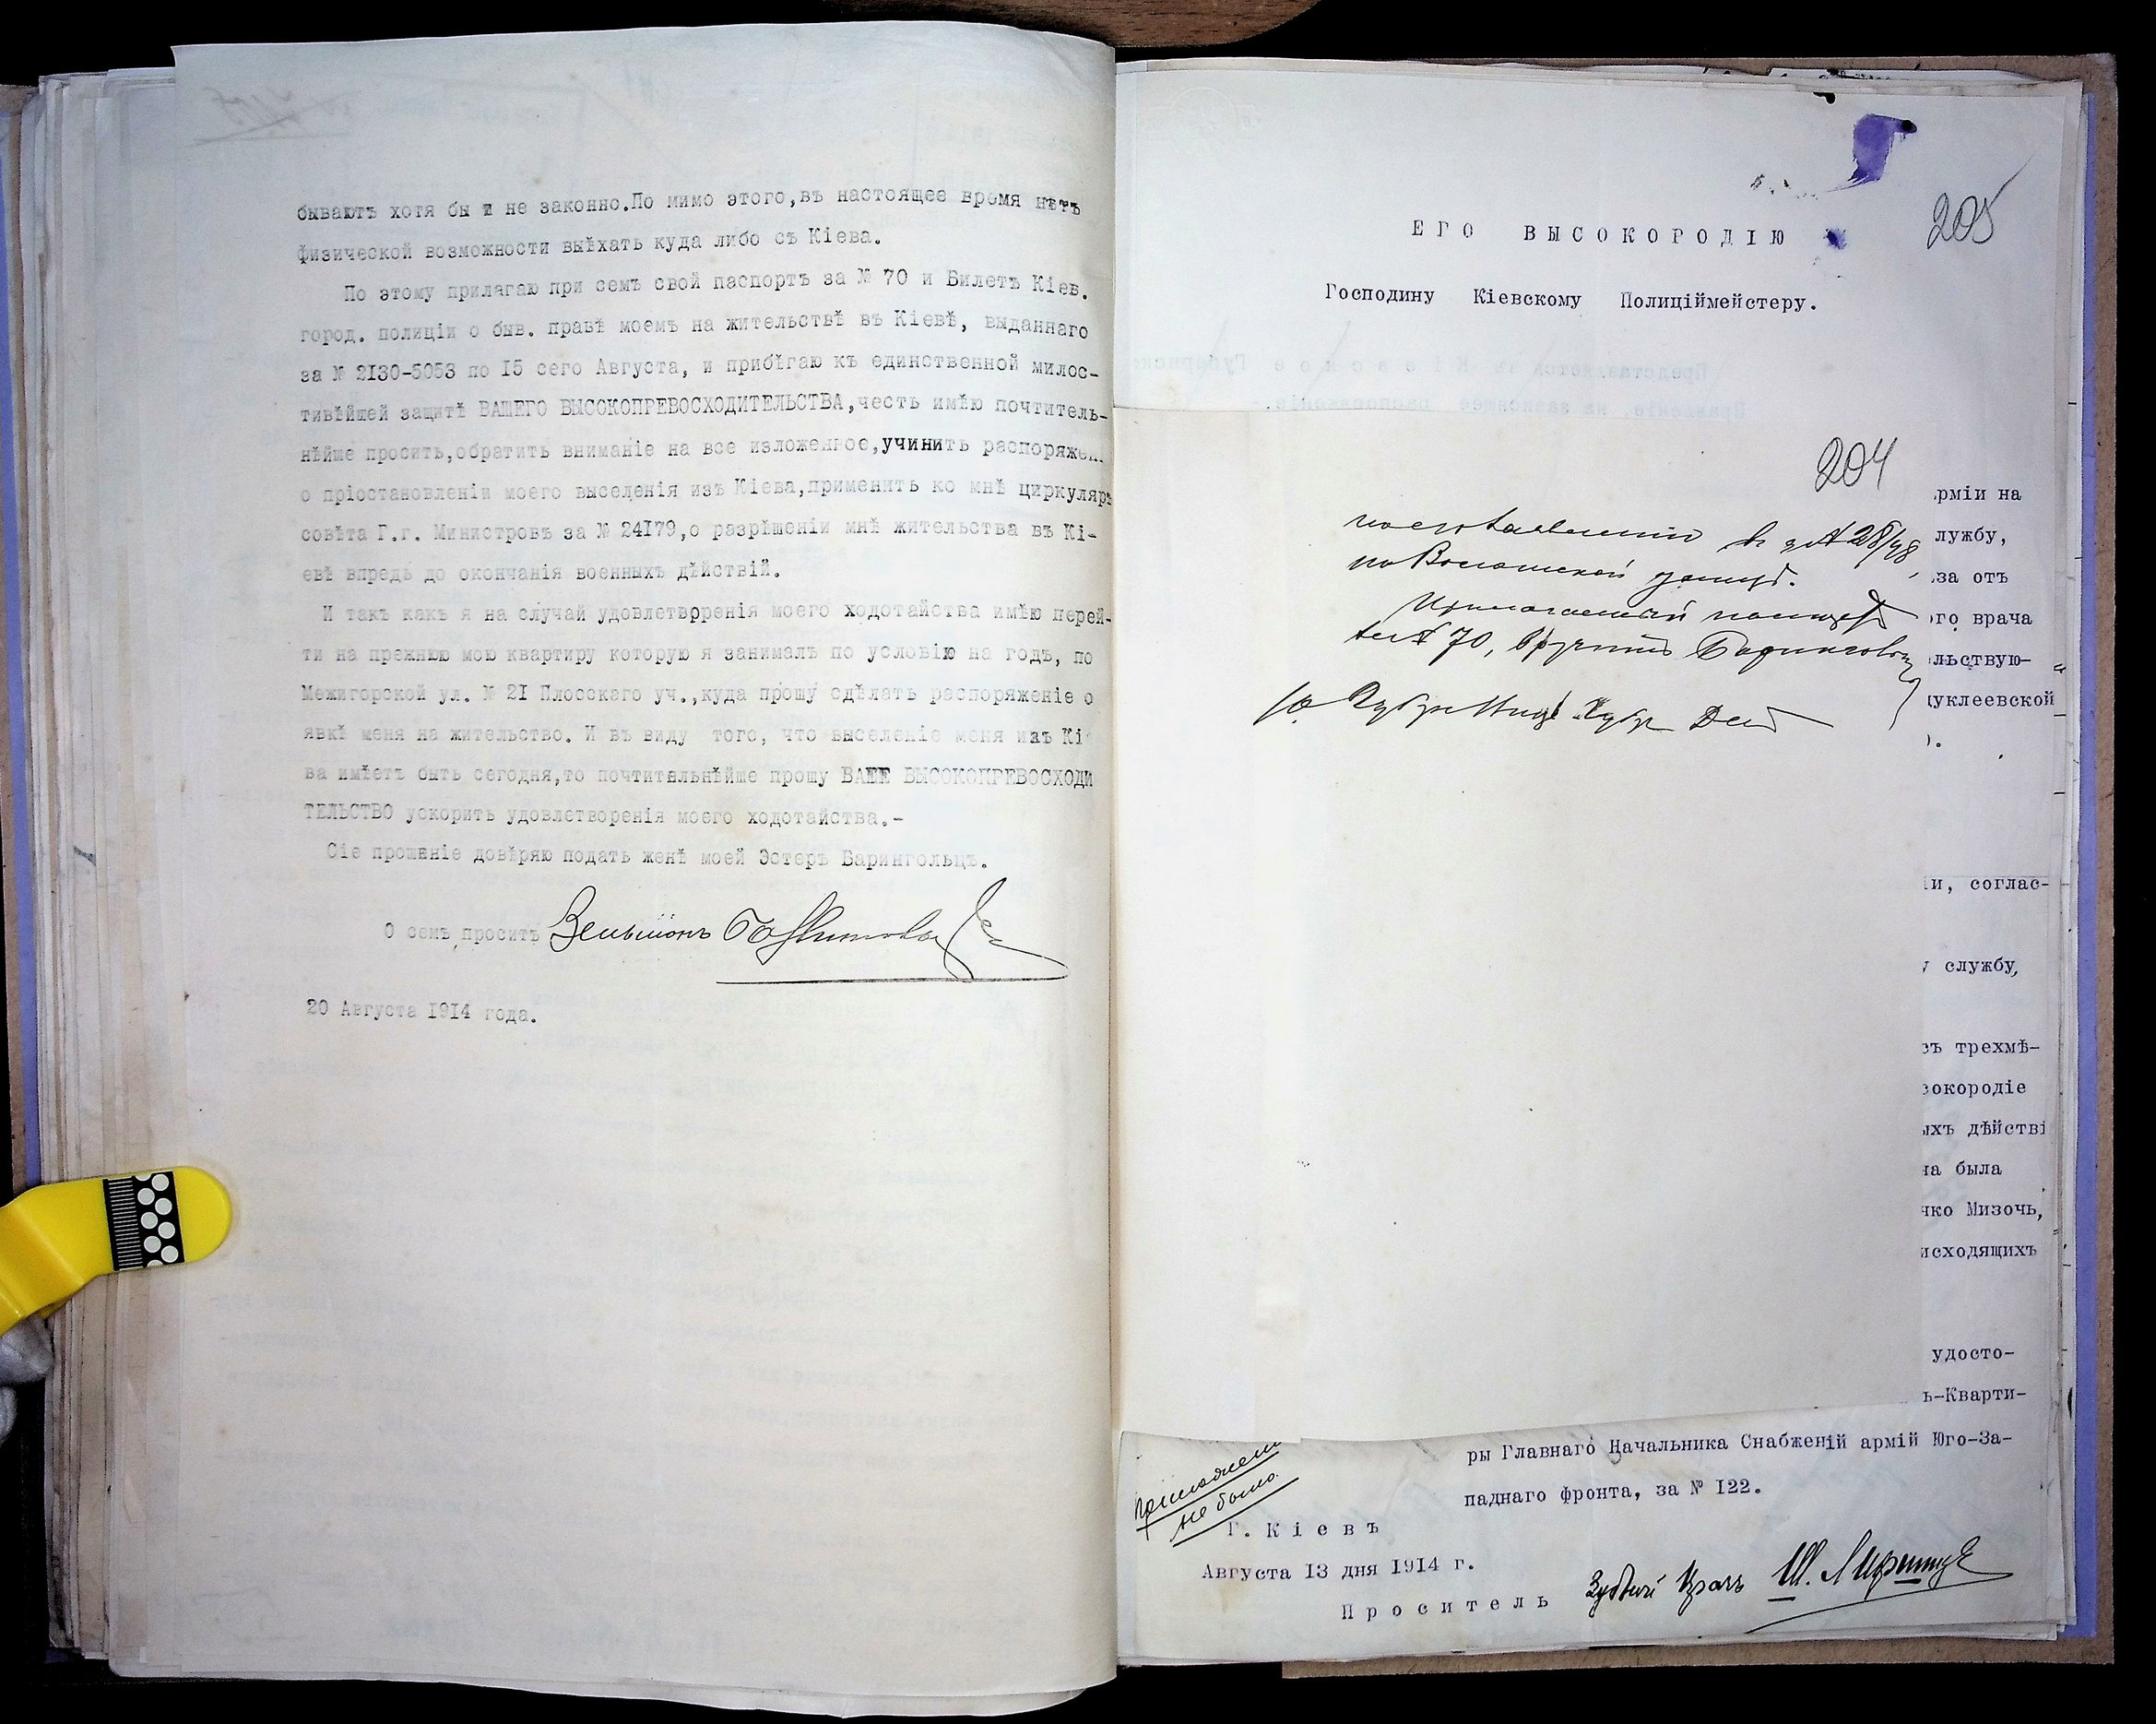 бываютъ хотя бы и не законно.По мимо этого,въ настоящее время нетъ
физической возможности выѣхать куда либо съ Кіева.
По этому прилагаю при семъ свой паспортъ за № 70 и Билетъ Кіев.
город. полиціи о быв. правѣ моемъ на жительствѣ въ Кіевѣ, выданнаго
за № 2130-5053 по 15 сего Августа, и прибѣгаю къ единственной милос-
тивѣйшей защитѣ ВАШЕГО ВЫСОКОПРЕВОСХОДИТЕЛЬСТВА,честь имѣю почтитель-
нѣйше просить,обратить вниманіе на все изложенное,учинить распоряжен
о пріостановленіи моего выселенія изъ Кіева,применить ко мнѣ циркуляръ
совѣта Г.г. Министровъ за № 24179,о разрѣшеніи мнѣ жительства въ Кі-
евѣ впредь до окончанія военныхъ дѣйствій.
И такъ какъ я на случай удовлетворенія моего ходотайства имѣю перей-
ти на прежнюю мою квартиру которую я занималъ по условію на годъ, по
Межигорской ул. № 21 Плосскаго уч.,куда прошу сдѣлать распоряженіе о
явкѣ меня на жительство. И въ виду того, что выселеніе меня изъ Кі
ва имѣетъ быть сегодня,то почтительнѣйше прошу ВАШЕ ВЫСОКОПРЕВОСХОДИ
ТЕЛЬСТВО ускорить удовлетворенія моего ходотайства.-
Сіе прошеніе довѣряю подать женѣ моей Эстеръ Барингольцъ.
О семъ просить Зельманъ
20 Августа 1914 года.
205
ЕГО ВЫСОКОРОДІЮ
Господину Кіевскому Полиціймейстеру.
204
рміи на
по Волошской улицѣ.
лужбу,
за отъ
го врача
№ 70,
льствую-
уклеевской
и, соглас-
службу,
ъ трехмѣ-
окородіе
ыхъ дѣйстві
на была
чко Мизочь,
исходящихъ
удосто-
ь-Кварти-
ры Главнаго Начальника Снабженій армій Юго-За-
паднаго фронта, за № 122.
не было.
Г. Кіевъ
Августа 13 дня 1914 г.
Проситель Зубной Врачъ Ш. Лифшицъ